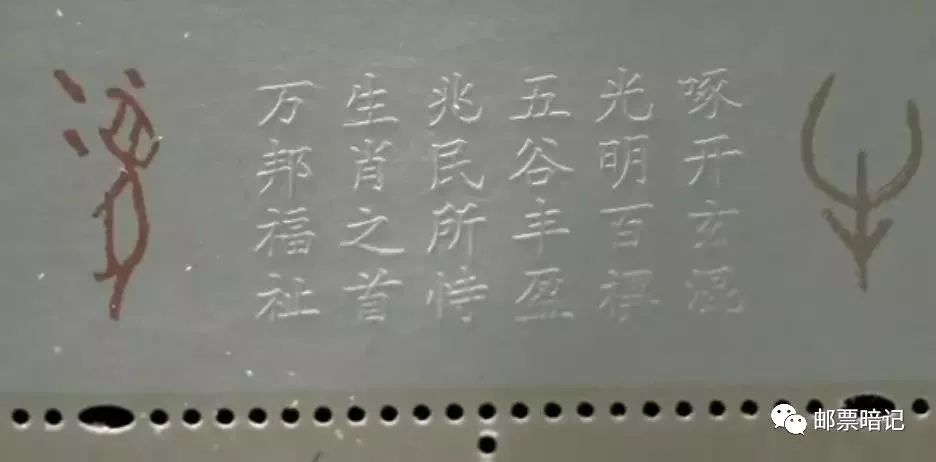 啄开玄混
光明百祺
五谷丰盈
兆民所恃
生肖之首
万邦福祉
邮票暗记